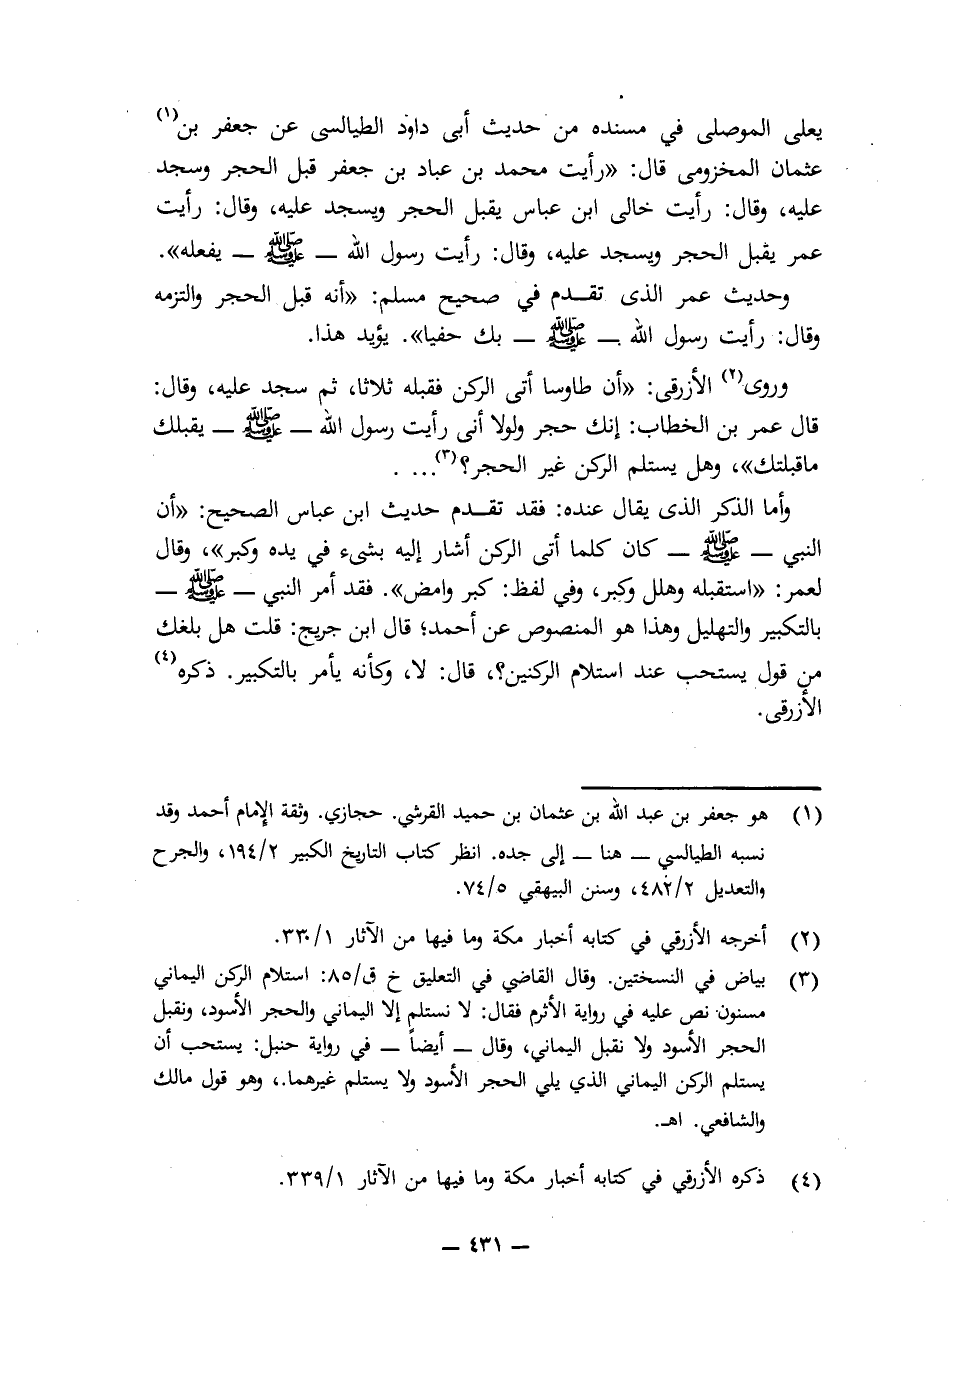 يعلى الموصلى في مسنده من حديث أبى داود الطيالسى عن جعفر بن(١)
عثمان المخزومى قال: «رأيت محمد بن عباد بن جعفر قبل الحجر وسجد
عليه، وقال: رأيت خالى ابن عباس يقبل الحجر ويسجد عليه، وقال: رأيت
عمر يقبل الحجر ويسجد عليه، وقال: رأيت رسول الله ــ ﷺ ــ يفعله».
وحديث عمر الذى تقـدم في صحيح مسلم: «أنه قبل الحجر والتزمه
وقال: رأيت رسول الله ــ ﷺ ــ بك حفيا». يؤيد هذا.
وروى(٢) الأزرقى: «أن طاوسا أتى الركن فقبله ثلاثا، ثم سجد عليه، وقال:
قال عمر بن الخطاب: إنك حجر ولولا أنى رأيت رسول الله ــ ﷺ ــ يقبلك
ماقبلتك»، وهل يستلم الركن غير الحجر؟(٣)... .
وأما الذكر الذى يقال عنده: فقد تقـدم حديث ابن عباس الصحيح: «أن
النبي ــ ﷺ ــ كان كلما أتى الركن أشار إليه بشىء في يده وكبر»، وقال
لعمر: «استقبله وهلل وكبر، وفي لفظ: كبر وامض». فقد أمر النبي ــ ﷺ ــ
بالتكبير والتهليل وهذا هو المنصوص عن أحمد؛ قال ابن جريج: قلت هل بلغك
من قول يستحب عند استلام الركنين؟، قال: لا، وكأنه يأمر بالتكبير. ذكره(٤)
الأزرقى.
(١) هو جعفر بن عبد الله بن عثمان بن حميد القرشي. حجازي. وثقة الإمام أحمد وقد
نسبه الطيالسي ــ هنا ــ إلى جده. انظر كتاب التاريخ الكبير ١٩٤/٢، والجرح
والتعديل ٤٨٢/٢، وسنن البيهقي ٧٤/٥.
(٢) أخرجه الأزرقي في كتابه أخبار مكة وما فيها من الآثار ٣٣٠/١.
(٣) بياض في النسختين. وقال القاضي في التعليق خ ق/٨٥: استلام الركن اليماني
مسنون نص عليه في رواية الأثرم فقال: لا نستلم إلا اليماني والحجر الأسود، ونقبل
الحجر الأسود ولا نقبل اليماني، وقال ــ أيضاً ــ في رواية حنبل: يستحب أن
يستلم الركن اليماني الذي يلي الحجر الأسود ولا يستلم غيرهما.، وهو قول مالك
والشافعي. اهـ.
(٤) ذكره الأزرقي في كتابه أخبار مكة وما فيها من الآثار ٣٣٩/١.
ــ ٤٣١ ــ